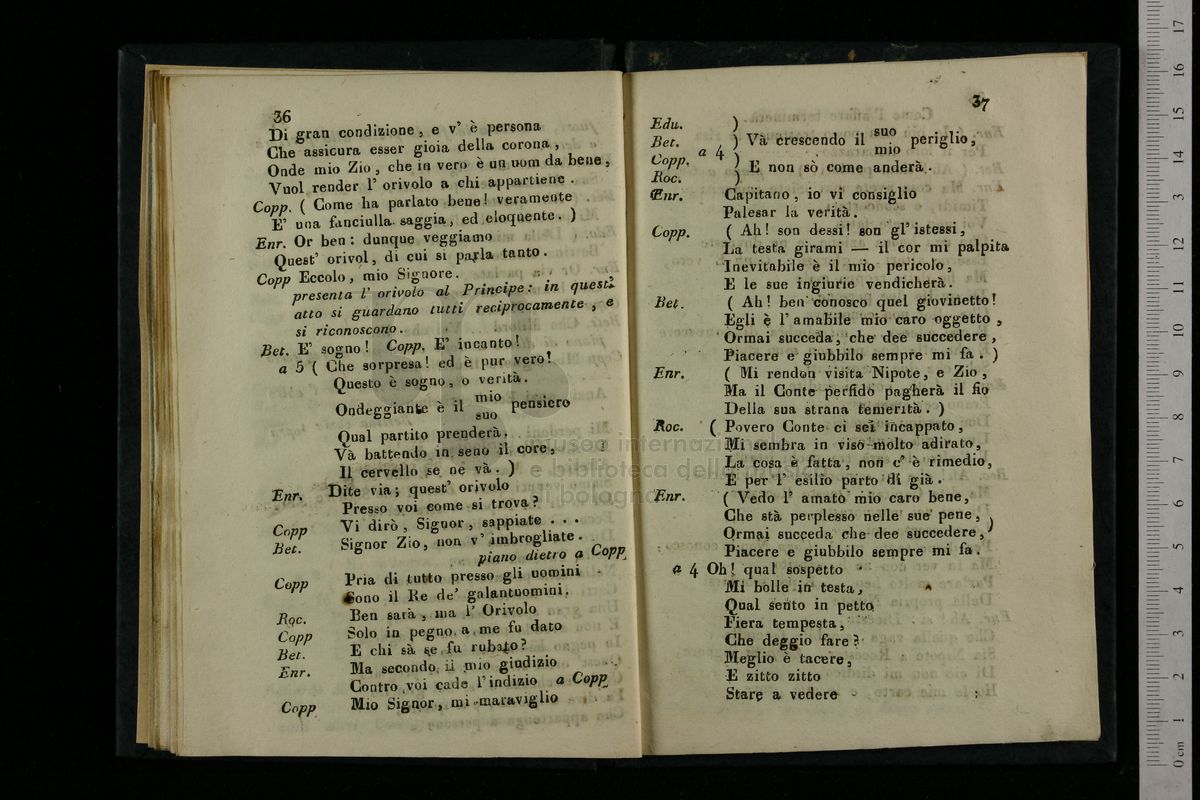 36
Di gran condizione, e v' è persona
Che assicura esser gioia della corona,
Onde mio Zio, che in vero è un uom da bene,
Vuol render l' orivolo a chi appartiene.
Copp. ( Come ha parlato bene! veramente
E' una fanciulla saggia, ed eloquente. )
Enr. Or ben: dunque veggiamo
Quest' orivol, di cui si parla tanto.
Copp Eccolo, mio Signore.
presenta l' orivolo al Principe: in questi
atto si guardano tutti reciprocamente, e
si riconoscono.
Bet. E' sogno! Copp. E' incanto!
a 5 ( Che sorpresa! ed è pur vero!
Questo è sogno, o verità.
Ondeggiante è il mio pensiero
suo
Qual partito prenderà.
Và battendo in seno il core,
Il cervello se ne và. )
Enr. Dite via; quest' orivolo
Presso voi come si trova?
Copp Vi dirò, Signor, sappiate . . .
Bet. Signor Zio, non v' imbrogliate.
piano dietro a Copp
Copp Pria di tutto presso gli uomini
Sono il Re de' galantuomini.
Roc. Ben sarà, ma l' Orivolo
Copp Solo in pegno a me fu dato
Bet. E chi sà se fu rubato?
Enr. Ma secondo il mio giudizio
Contro voi cade l'indizio a Copp
Copp Mio Signor, mi maraviglio
37
Edu. )
Bet. ) Và crescendo il suo periglio,
a 4 mio
Copp. ) E non sò come anderà.
Roc. )
Enr. Capitano, io vi consiglio
Palesar la verità.
Copp. ( Ah! son dessi! son gl' istessi,
La testa girami — il cor mi palpita
Inevitabile è il mio pericolo,
E le sue ingiurie vendicherà.
Bet. ( Ah! ben conosco quel giovinetto!
Egli è l' amabile mio caro oggetto,
Ormai succeda, che dee succedere,
Piacere e giubbilo sempre mi fa. )
Enr. ( Mi rendon visita Nipote, e Zio,
Ma il Conte perfido pagherà il fio
Della sua strana temerità. )
Roc. ( Povero Conte ci sei incappato,
Mi sembra in viso molto adirato,
La cosa è fatta, non c' è rimedio,
E per l' esilio parto di già.
Enr. ( Vedo l' amato mio caro bene,
Che stà perplesso nelle sue pene,
Ormai succeda che dee succedere,
Piacere e giubbilo sempre mi fa. )
a 4 Oh! qual sospetto
Mi bolle in testa,
Qual sento in petto
Fiera tempesta,
Che deggio fare?
Meglio è tacere,
E zitto zitto
Stare a vedere
museo internazionale
e biblioteca della musica
di bologna
0 cm 1 2 3 4 5 6 7 8 9 10 11 12 13 14 15 16 17